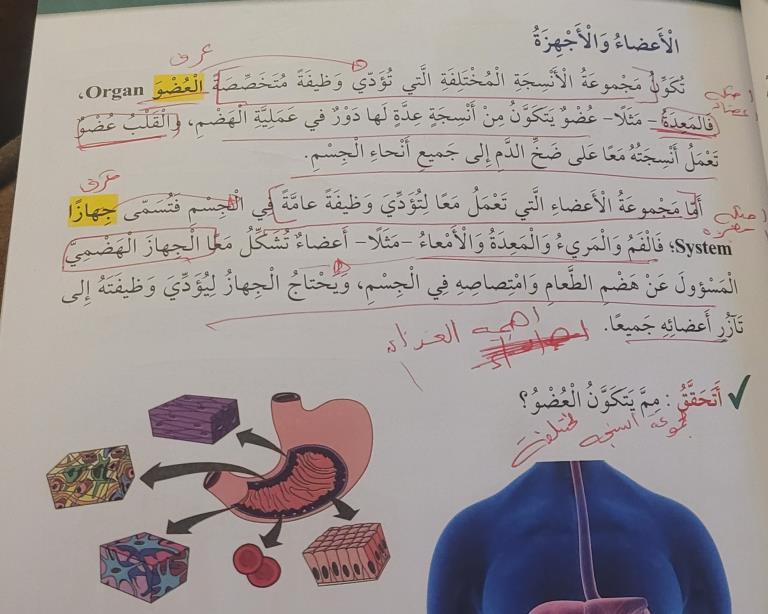 الْأَعضاءُ وَالْأَجْهِزَةُ
عرف
تُكَوِّنُ مَجْموعَةُ الْأَنْسِجَةِ الْمُخْتَلِفَةِ الَّتي تُؤَدّي وَظيفَةً مُتَخَصِّصَةً الْعُضْوَ Organ،
فَالمَعِدَةُ – مَثَلًا– عُضْوٌ يَتَكَوَّنُ مِنْ أَنْسِجَةٍ عِدَّةٍ لَها دَوْرٌ في عَمَلِيَّةِ الْهَضْمِ، وَالْقَلْبُ عُضْوٌ
تَعْمَلُ أَنْسِجَتُهُ مَعًا عَلى ضَخِّ الدَّمِ إِلى جَميعِ أَنْحاءِ الْجِسْمِ.
عرف
أَمّا مَجْموعَةُ الْأَعضاءِ الَّتي تَعْمَلُ مَعًا لِتُؤَدِّيَ وَظيفَةً عامَّةً في الْجِسْمِ فَتُسَمّى جِهازًا
System؛ فَالْفَمُ وَالْمَريءُ وَالْمَعِدَةُ وَالْأَمْعاءُ –مَثَلًا– أَعضاءٌ تُشَكِّلُ مَعًا الْجِهازَ الْهَضْمِيَّ
الْمَسْؤولَ عَنْ هَضْمِ الطَّعامِ وَامْتِصاصِهِ فِي الْجِسْمِ، وَيَحْتاجُ الْجِهازُ لِيُؤَدِّيَ وَظيفَتَهُ إِلى
تَآزُرِ أَعضائِهِ جَميعًا.
✔ أَتَحَقَّقُ: مِمَّ يَتَكَوَّنُ الْعُضْوُ؟
مجموعة انسجه مختلفة